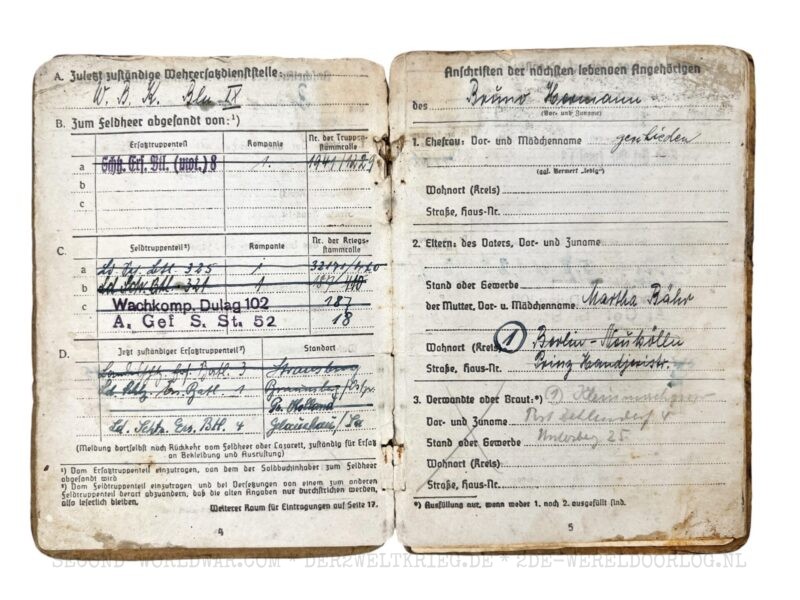 A. Zuletzt zuständige Wehrersatzdienststelle:
W. B. K. Bln IX
B. Zum Feldheer abgesandt von:¹)
Ersatztruppenteil Kompanie Nr. der Truppen-
stammrolle
a Schtz. Ers. Btl. (mot.) 8 1. 1941/
b
c
C. Feldtruppenteil²) Kompanie Nr. der Kriegs-
stammrolle
a Btl. 325
b 187/
c Wachkomp. Dulag 102 187
A. Gef S. St. 52 18
D. Jetzt zuständiger Ersatztruppenteil²) Standort
3 Strausberg
Ld. Schtz. Ers. Batl. 1 Braunsberg/Ostpr.
Pr. Holland
Ld. Schtz. Ers. Btl. 4 Glauchau/Sa
(Meldung dortselbst nach Rückkehr vom Feldheer oder Lazarett, zuständig für Ersatz
an Bekleidung und Ausrüstung)
¹) Vom Ersatztruppenteil einzutragen, von dem der Soldbuchinhaber zum Feldheer
abgesandt wird
²) Vom Feldtruppenteil einzutragen und bei Versetzungen von einem zum anderen
Feldtruppenteil derart abzuändern, daß die alten Angaben nur durchstrichen werden,
also leserlich bleiben.
Weiterer Raum für Eintragungen auf Seite 17.
4
Anschriften der nächsten lebenden Angehörigen
des Bruno Hermann
(Vor- und Zuname)
1. Ehefrau: Vor- und Mädchenname geschieden
(ggf. Vermerk „ledig“)
Wohnort (Kreis)
Straße, Haus-Nr.
2. Eltern: des Vaters, Vor- und Zuname
Stand oder Gewerbe
der Mutter, Vor- u. Mädchenname Martha Bähr
Wohnort (Kreis) 1 Berlin-Neukölln
Straße, Haus-Nr. Prinz Handjeristr.
3. Verwandte oder Braut:*)
Vor- und Zuname
Stand oder Gewerbe 25
Wohnort (Kreis)
Straße, Haus-Nr.
*) Ausfüllung nur, wenn weder 1. noch 2. ausgefüllt sind.
5
SECOND-WORLDWAR.COM * DER2WELTKRIEG.DE * 2DE-WERELDOORLOG.NL